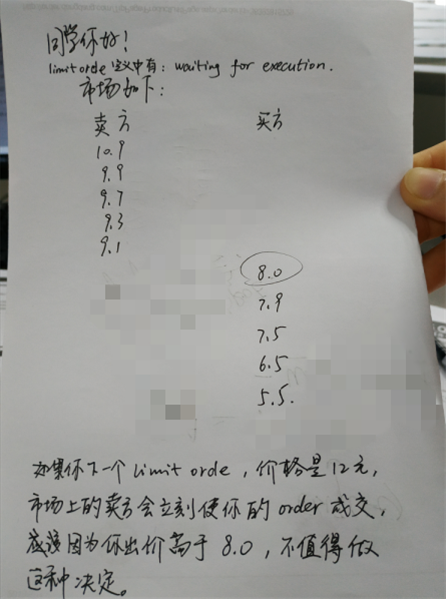 同学你好！
limit orde 定义中有：waiting for execution.
市场如下：
卖方 买方
10.9
9.9
9.7
9.3
9.1
8.0
7.9
7.5
6.5
5.5.
如果你下一个 limit orde，价格是12元，
市场上的卖方会立刻使你的 order 成交，
应该因为你出价高于 8.0，不值得做
这种决定。